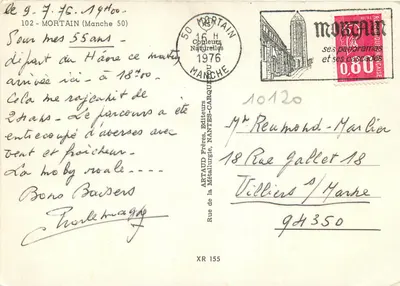 le 9.7.76. 19h00.
102 - MORTAIN (Manche 50)
Pour mes 55 ans.
départ du Hâvre ce matin
arrivée ici à 18h00.
Cela me rajeunit de
2 ans. Le parcours a été
entrecoupé d'averses avec
vent et fraîcheur.
La moby roule ----
Bons Baisers
Couleurs
Naturelles
ARTAUD Frères, Éditeurs
Rue de la Métallurgie, NANTES-CARQUEFOU
50 MORTAIN
16 H
1976
MANCHE
MORTAIN
ses panoramas
et ses cascades
0,80
10120
Mr Reumond-Marlior
18 Rue Gallet 18
Villiers s/Marne
94350
XR 155